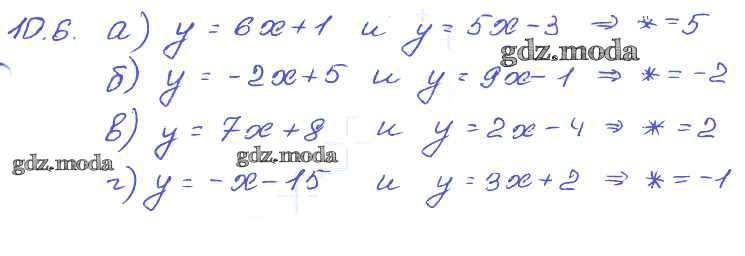 10.6. а) y = 6x + 1 и y = 5x - 3 ⇒ * = 5
gdz.moda
б) y = -2x + 5 и y = 9x - 1 ⇒ * = -2
в) y = 7x + 8 и y = 2x - 4 ⇒ * = 2
gdz.moda gdz.moda
г) y = -x - 15 и y = 3x + 2 ⇒ * = -1